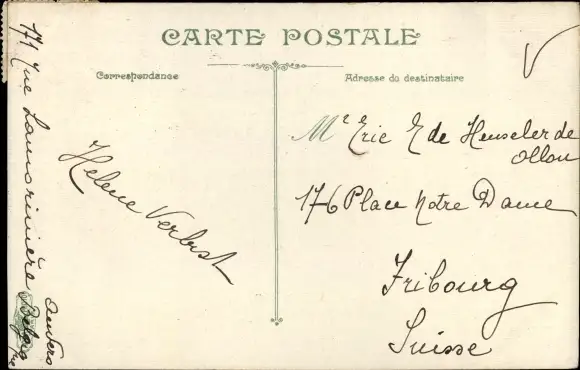 CARTE POSTALE
Correspondance
Adresse du destinataire
171 rue Lamorinière
Anvers
Belgique
Helene Verbist
Mr Eric E de Henseler de
Ollon
176 Place Notre Dame
Fribourg
Suisse